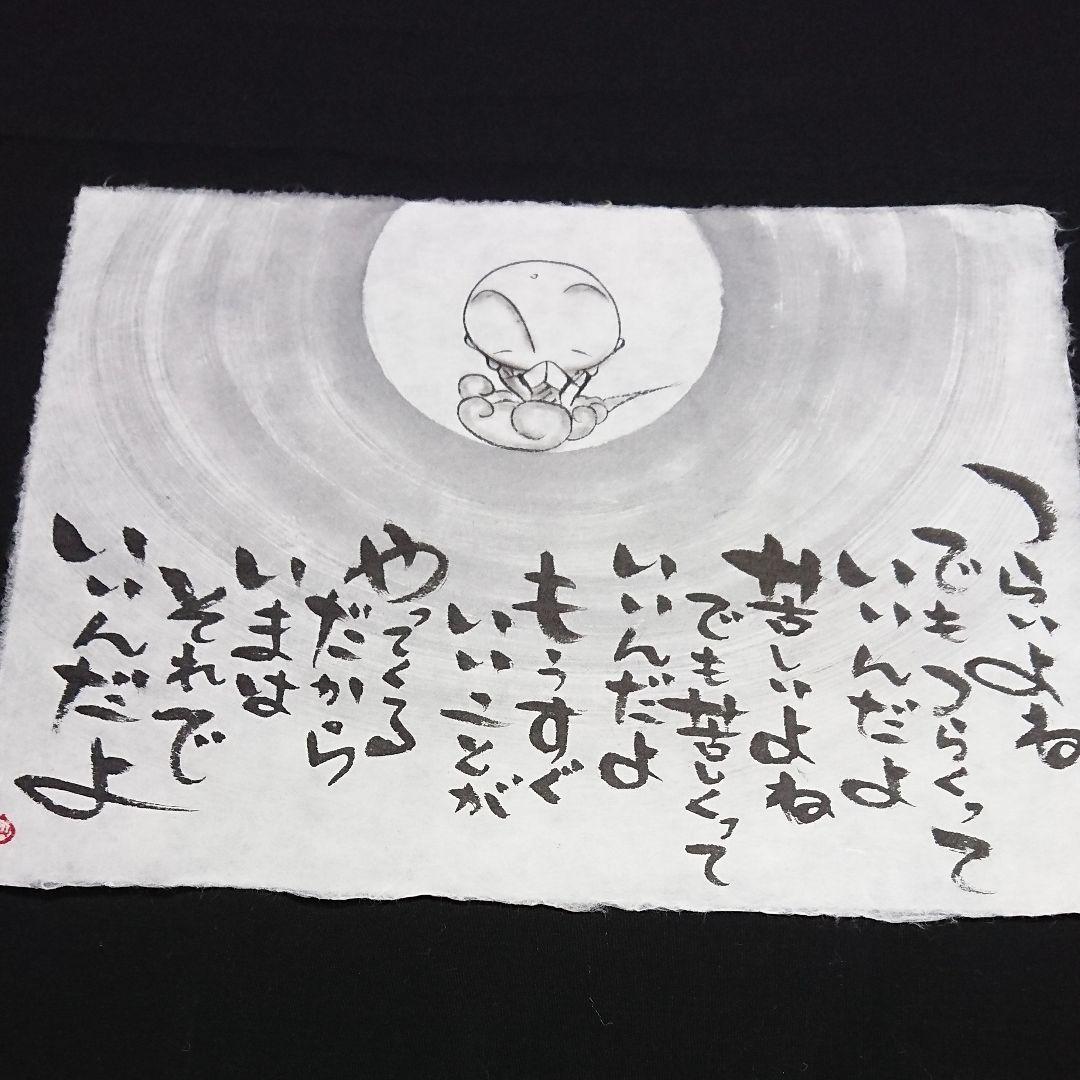 つらいよね
でもつらくって
いいんだよ
苦しいよね
でも苦しくって
いいんだよ
もうすぐ
いいことが
やってくる
だから
いまは
それで
いいんだよ